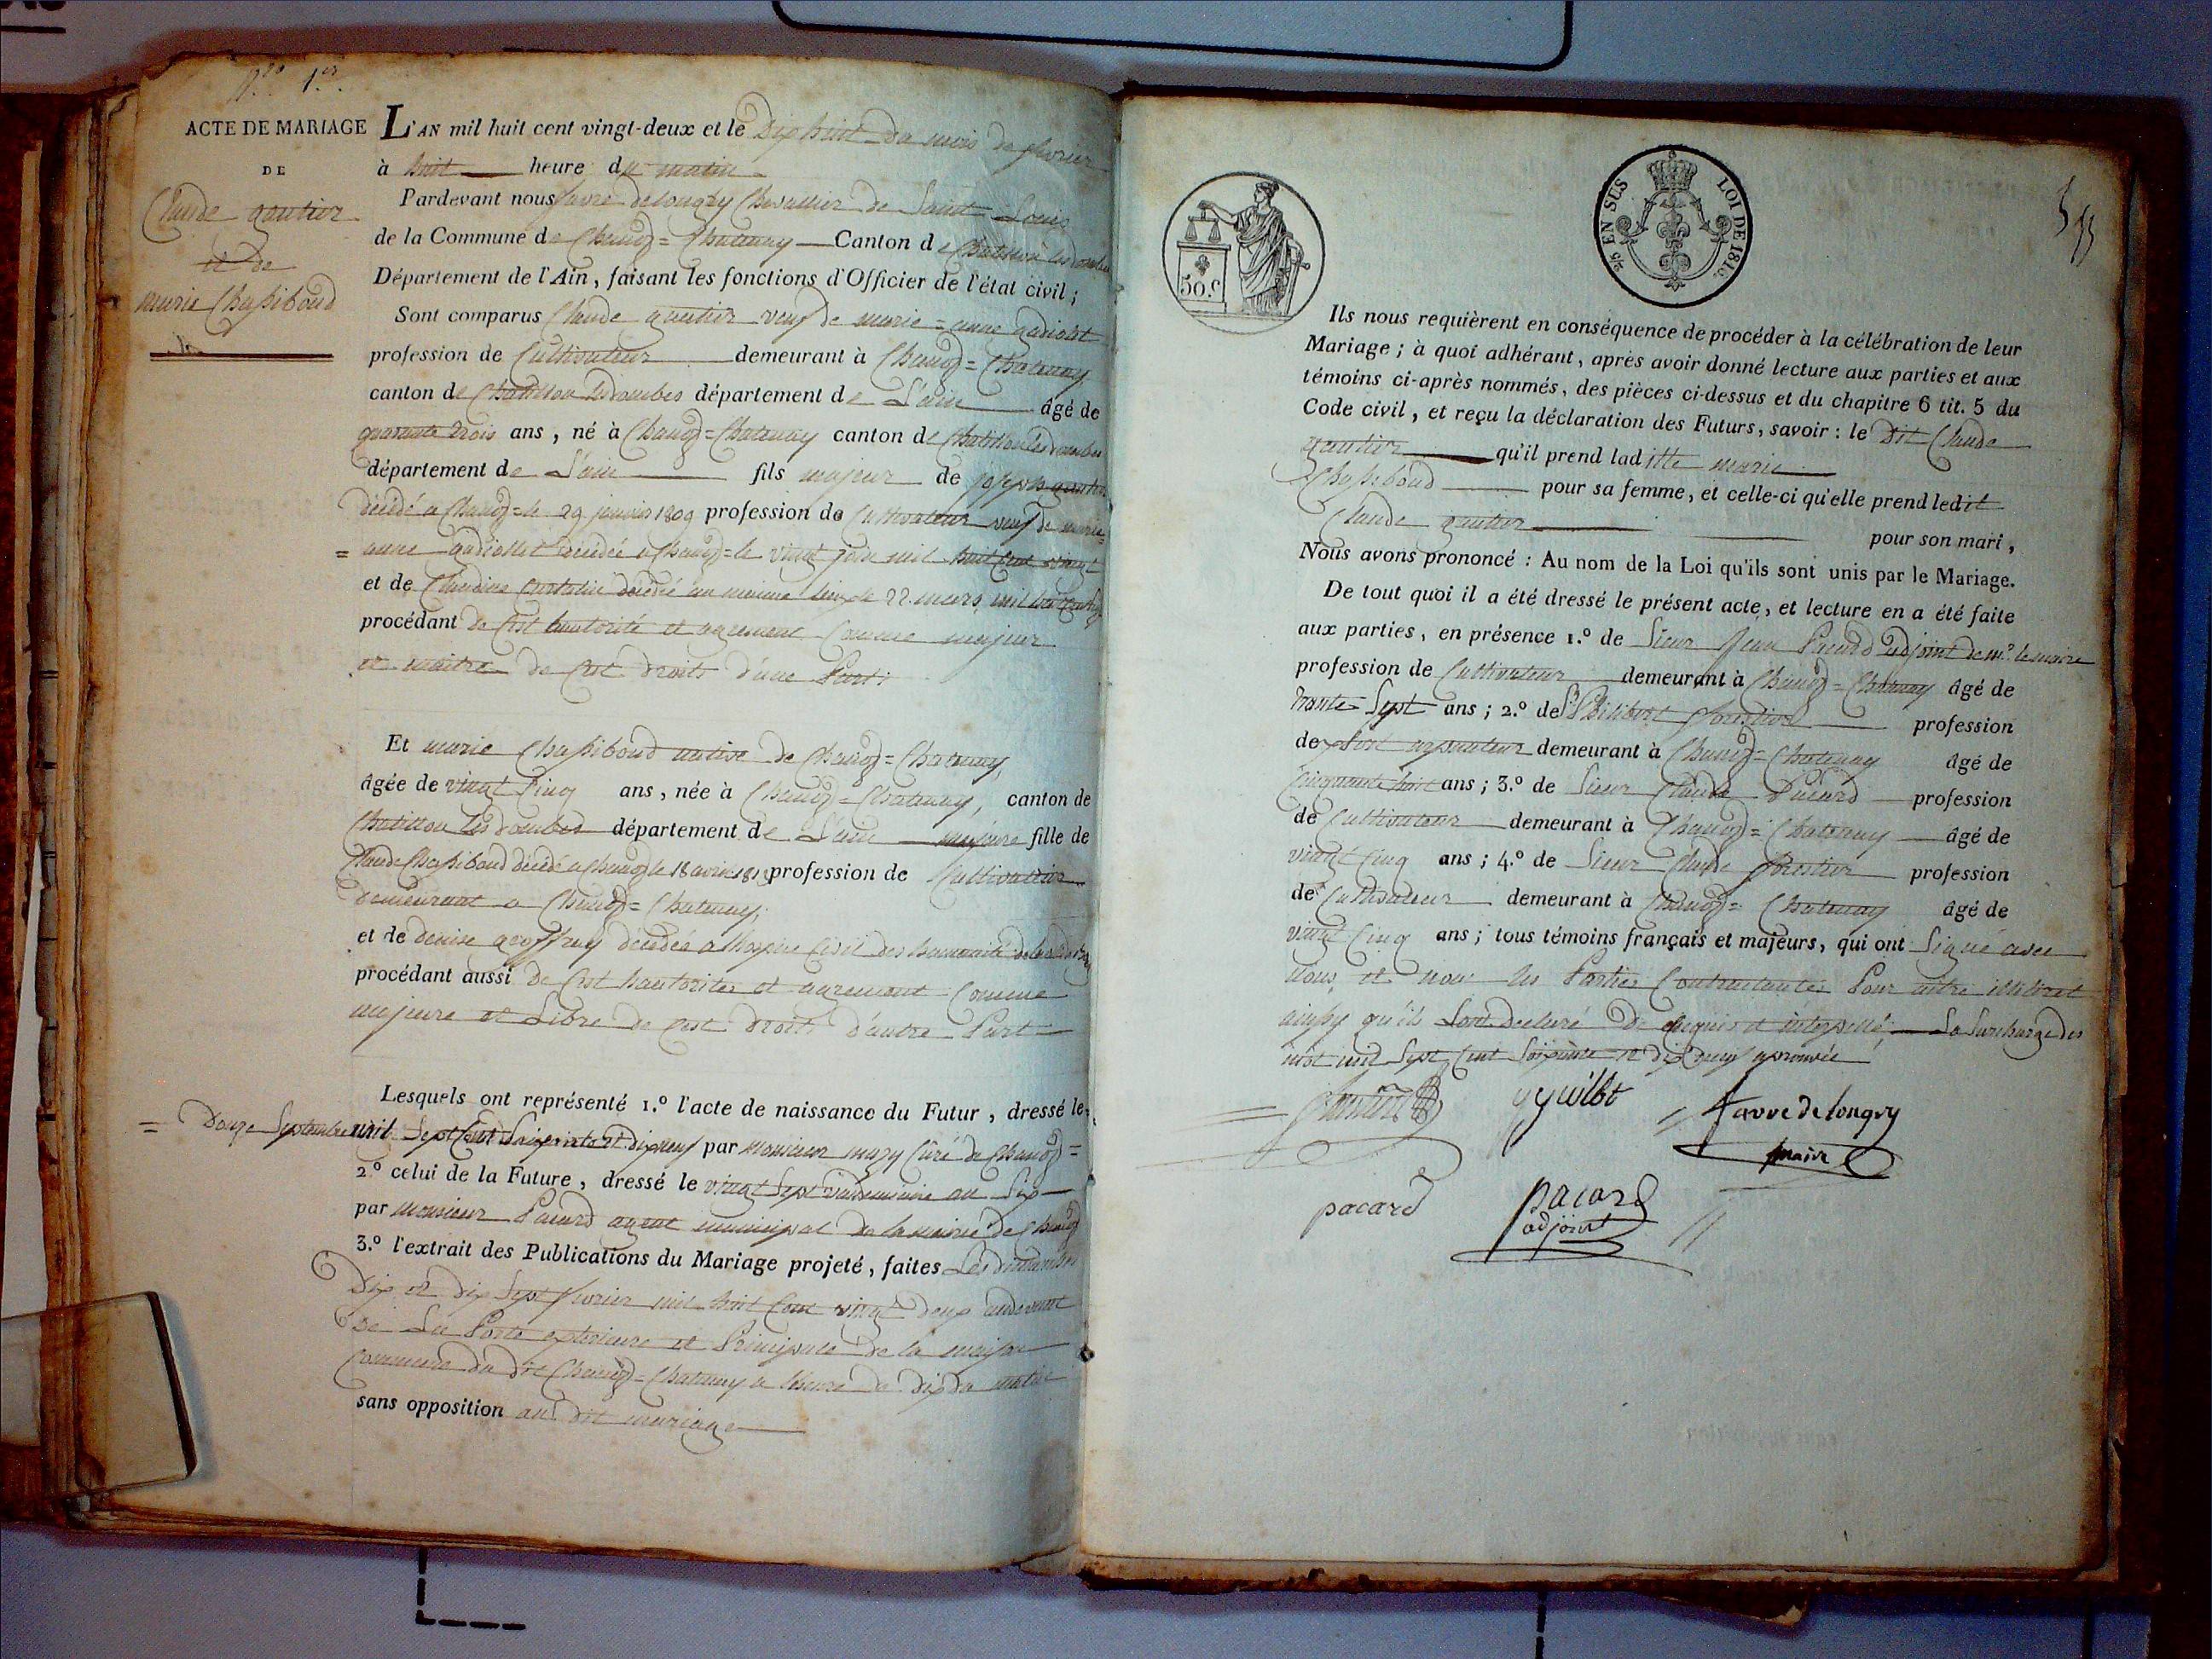 N.º 1.er
ACTE DE MARIAGE
DE
Claude gautier
et de
marie Chassiboud
L'AN mil huit cent vingt-deux et le Dix huit du mois de fevrier
à huit heure du matin
Pardevant nous favre delongry Chevallier de Saint Louis
de la Commune de Chanoz = Chatenay Canton de Chatillon les dombes
Département de l'Ain, faisant les fonctions d'Officier de l'état civil ;
Sont comparus Claude gautier veuf de marie = anne
profession de Cultivateur demeurant à Chanoz = Chatenay
canton de Chatillon les dombes département de L'ain âgé de
quarante trois ans, né à Chanoz = Chatenay canton de Chatillon les dombes
département de L'ain fils majeur de joseph gautier
décédé a Chanoz = le 29 janvier 1809 profession de Cultivateur veuf de marie
= anne décédée a Chanoz = le vingt juin mil huit Cent vingt
et de Claudine décédé au même lieu le 22 mars mil huit
procédant de Cest hautorité et agrement Comme majeur
et maitre de Cest droits d'une Part ;
Et marie Chassiboud native de Chanoz = Chatenay,
âgée de vingt Cinq ans, née à Chanoz = Chatenay, canton de
Chatillon les dombes département de L'ain majeure fille de
Claude Chassiboud décédé a Chanoz le 18 avril profession de Cultivateur
demeurant a Chanoz = Chatenay,
et de denise geoffrey décédée a l'hospice Civil des
procédant aussi de Cest hautorités et agrement Comme
majeure et Libre de Cest droits d'autre Part
Lesquels ont représenté 1.º l'acte de naissance du Futur, dressé le
= Douze Septembre mil Sept Cent Soixante et dix neuf par Monsieur mary Curé de Chanoz =
2.º celui de la Future, dressé le vingt Sept vendemiaire an Six
par Monsieur Pacard agent municipal de la mairie de Chanoz
3.º l'extrait des Publications du Mariage projeté, faites Les dimanches
Dix et dix Sept fevrier mil huit Cent vingt deux audevant
De La Porte exterieure et Principale de la maison
Commune du dit Chanoz = Chatenay a l'heure de dix du matin
sans opposition au dit mariage
50.c
5/5 EN SUS
LOI DE 1816.
Ils nous requièrent en conséquence de procéder à la célébration de leur
Mariage ; à quoi adhérant, après avoir donné lecture aux parties et aux
témoins ci-après nommés, des pièces ci-dessus et du chapitre 6 tit. 5 du
Code civil, et reçu la déclaration des Futurs, savoir : le dit Claude
gautier qu'il prend laditte marie
Chassiboud pour sa femme, et celle-ci qu'elle prend ledit
Claude gautier pour son mari,
Nous avons prononcé : Au nom de la Loi qu'ils sont unis par le Mariage.
De tout quoi il a été dressé le présent acte, et lecture en a été faite
aux parties, en présence 1.º de Sieur Jean Pacard adjoint de m.r le maire
profession de Cultivateur demeurant à Chanoz = Chatenay âgé de
trante Sept ans ; 2.º de S.r Philibert forestier profession
de demeurant à Chanoz = Chatenay âgé de
Cinquante huit ans ; 3.º de Sieur Claude Pacard profession
de Cultivateur demeurant à Chanoz = Chatenay âgé de
vingt Cinq ans ; 4.º de Sieur Claude forestier profession
de Cultivateur demeurant à Chanoz = Chatenay âgé de
vingt Cinq ans ; tous témoins français et majeurs, qui ont Signé avec
Nous, et non les Parties Contractantes Pour être illitéré
ainsy qu'ils L'ont declaré De ce requis et interpellé, La Surcharge des
mot mil Sept Cent Soixante et dix neuf aprouvée
favre de longry
maire
pacard
pacard
adjoint